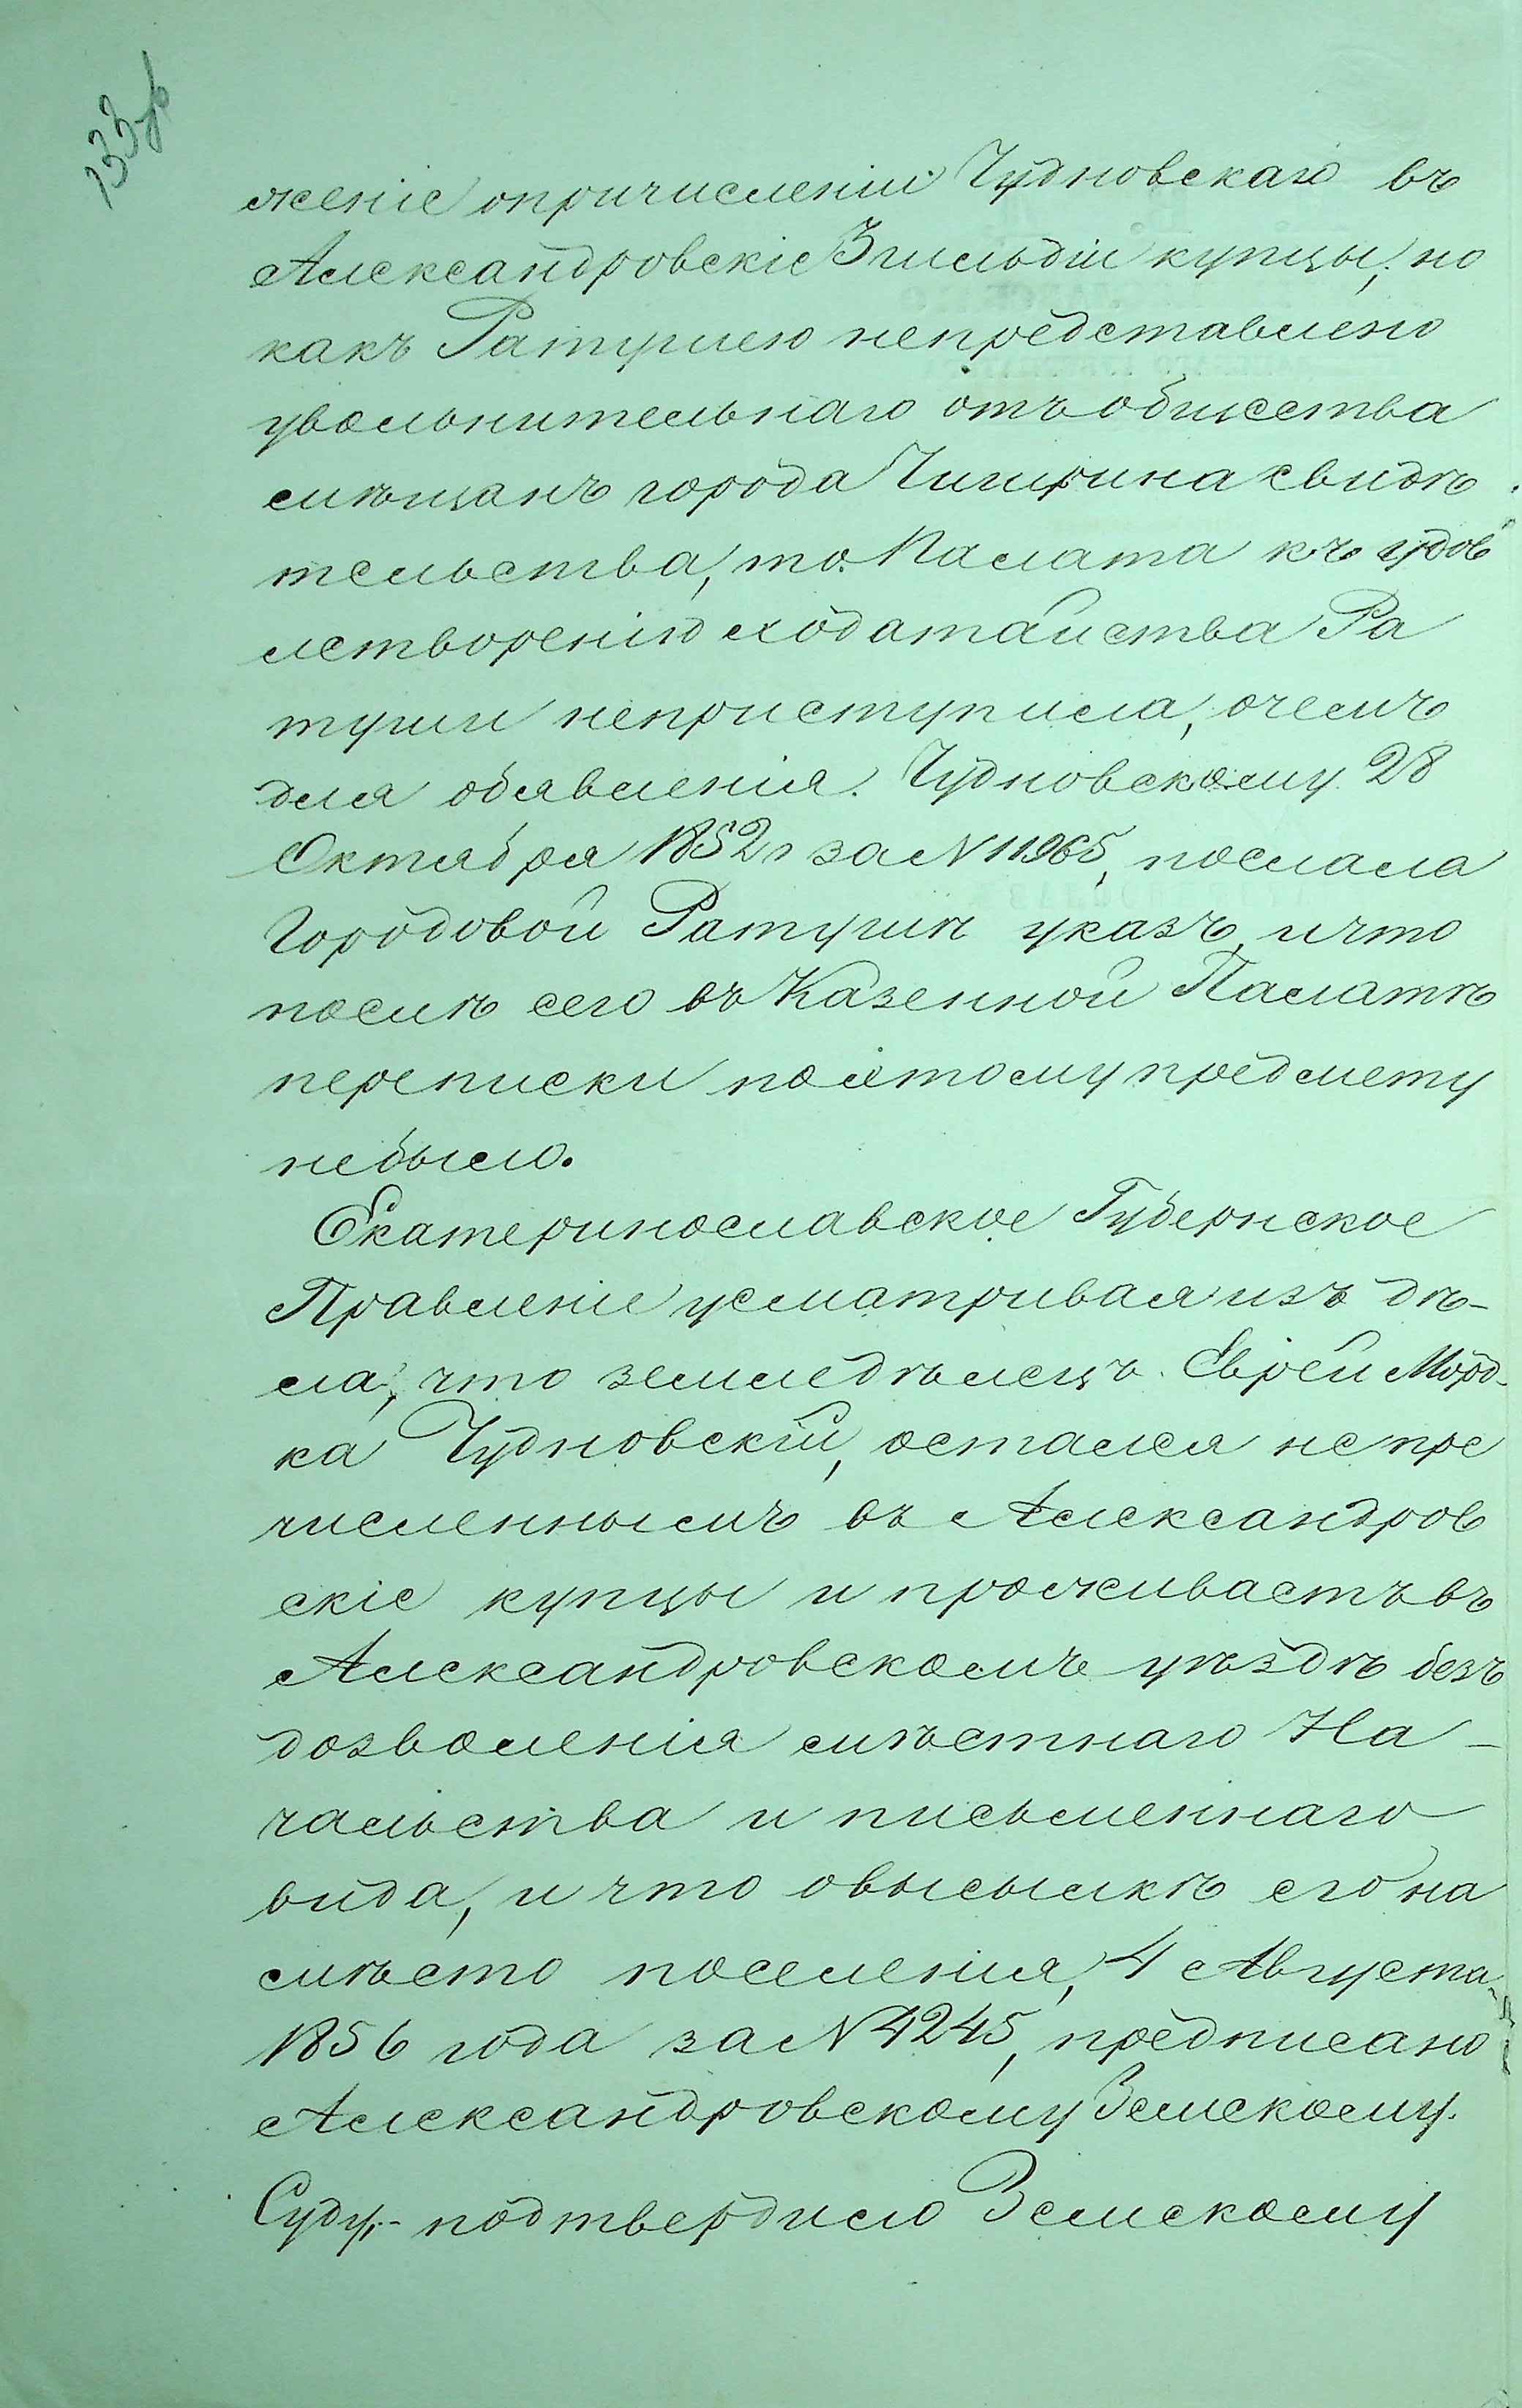 133об
женіе опричисленіи Чудновскаго въ
Александровскіе 3 гильдіи купцы, но
какъ Ратушею непредставлено
увольнительнаго отъ общества
мѣщанъ города Чигирина свидѣ
тельства, то Палата къ удов
летворенію ходатайства Ра
туши неприступила, очемъ
для обявленія Чудновскому 28
Октября 1852 г за N 11965, послала
Городовой Ратушѣ указъ, и что
послѣ сего въ Казенной Палатѣ
переписки поэтому предмету
небыло.
Екатеринославское Губернское
Правленіе усматривая изъ дѣ-
ла, что земледѣлецъ Еврей Морд-
ка Чудновскій, остался непре
численнымъ въ Александров
скіе купцы и проживаетъ въ
Александровскомъ уѣздѣ безъ
дозволенія мѣстнаго На-
чальства и письменнаго
вида, и что овысылкѣ его на
мѣсто поселенія, 4 Августа
1856 года за N 4245, предписано
Александровскому Земскому
Суду,- подтвердило Земскому